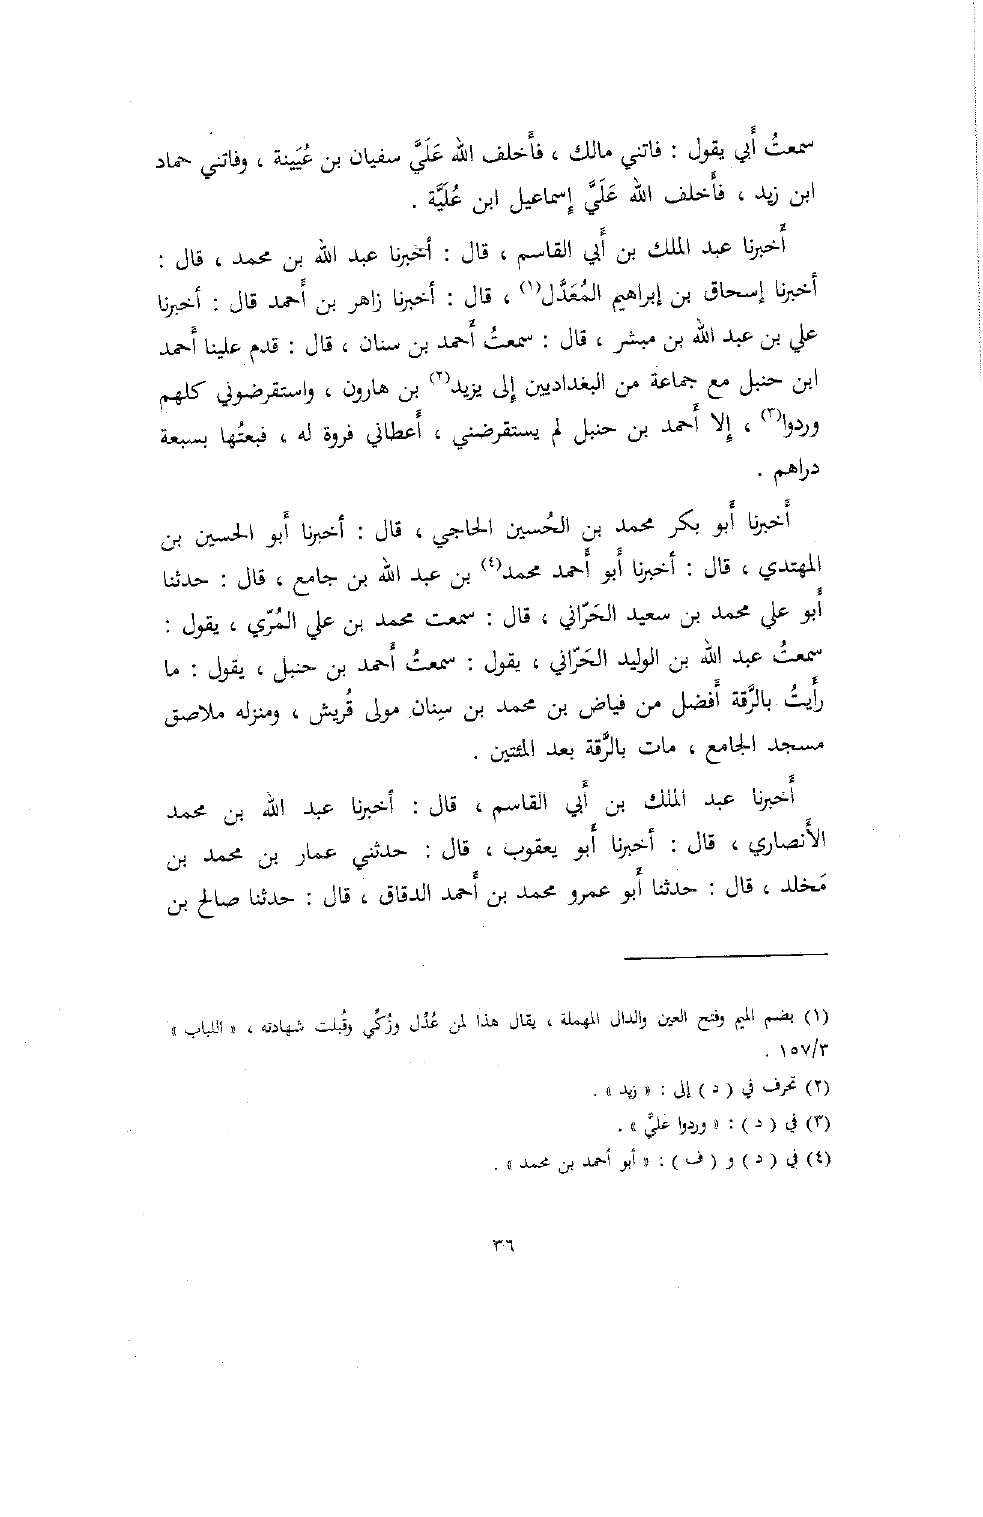 سمعتُ أَبي يقول : فاتني مالك ، فأَخلف الله عَلَيَّ سفيان بن عُيَينة ، وفاتني حماد
ابن زيد ، فأَخلف الله عَلَيَّ إِسماعيل ابن عُلَيَّة .
أَخبرنا عبد الملك بن أَبي القاسم ، قال : أَخبرنا عبد الله بن محمد ، قال :
أَخبرنا إِسحاق بن إِبراهيم المُعَدَّل(١) ، قال : أَخبرنا زاهر بن أَحمد قال : أَخبرنا
علي بن عبد الله بن مبشر ، قال : سمعتُ أَحمد بن سنان ، قال : قدم علينا أَحمد
ابن حنبل مع جماعة من البغداديين إِلى يزيد(٢) بن هارون ، واستقرضوني كلهم
وردوا(٣) ، إِلا أَحمد بن حنبل لم يستقرضني ، أَعطاني فروة له ، فبعتُها بسبعة
دراهم .
أَخبرنا أَبو بكر محمد بن الحُسين الحاجي ، قال : أَخبرنا أَبو الحسين بن
المهتدي ، قال : أَخبرنا أَبو أَحمد محمد(٤) بن عبد الله بن جامع ، قال : حدثنا
أَبو علي محمد بن سعيد الحَرّاني ، قال : سمعت محمد بن علي المُرّي ، يقول :
سمعتُ عبد الله بن الوليد الحَرّاني ، يقول : سمعتُ أَحمد بن حنبل ، يقول : ما
رأَيتُ بالرَّقة أَفضل من فياض بن محمد بن سِنان مولى قُريش ، ومنزله ملاصق
مسجد الجامع ، مات بالرَّقة بعد المئتين .
أَخبرنا عبد الملك بن أَبي القاسم ، قال : أَخبرنا عبد الله بن محمد
الأَنصاري ، قال : أَخبرنا أَبو يعقوب ، قال : حدثني عمار بن محمد بن
مَخلد ، قال : حدثنا أَبو عمرو محمد بن أَحمد الدقاق ، قال : حدثنا صالح بن
(١) بضم الميم وفتح العين والدال المهملة ، يقال هذا لمن عُدِّل وزُكِّي وقُبلت شهادته ، « اللباب »
١٥٧/٣ .
(٢) تحرف في ( د ) إلى : « زيد » .
(٣) في ( د ) : « وردوا عليَّ » .
(٤) في ( د ) و ( ف ) : « أبو أحمد بن محمد » .
٣٦